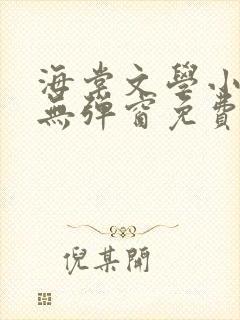 海棠文學小
無彈窗免費
倪某開